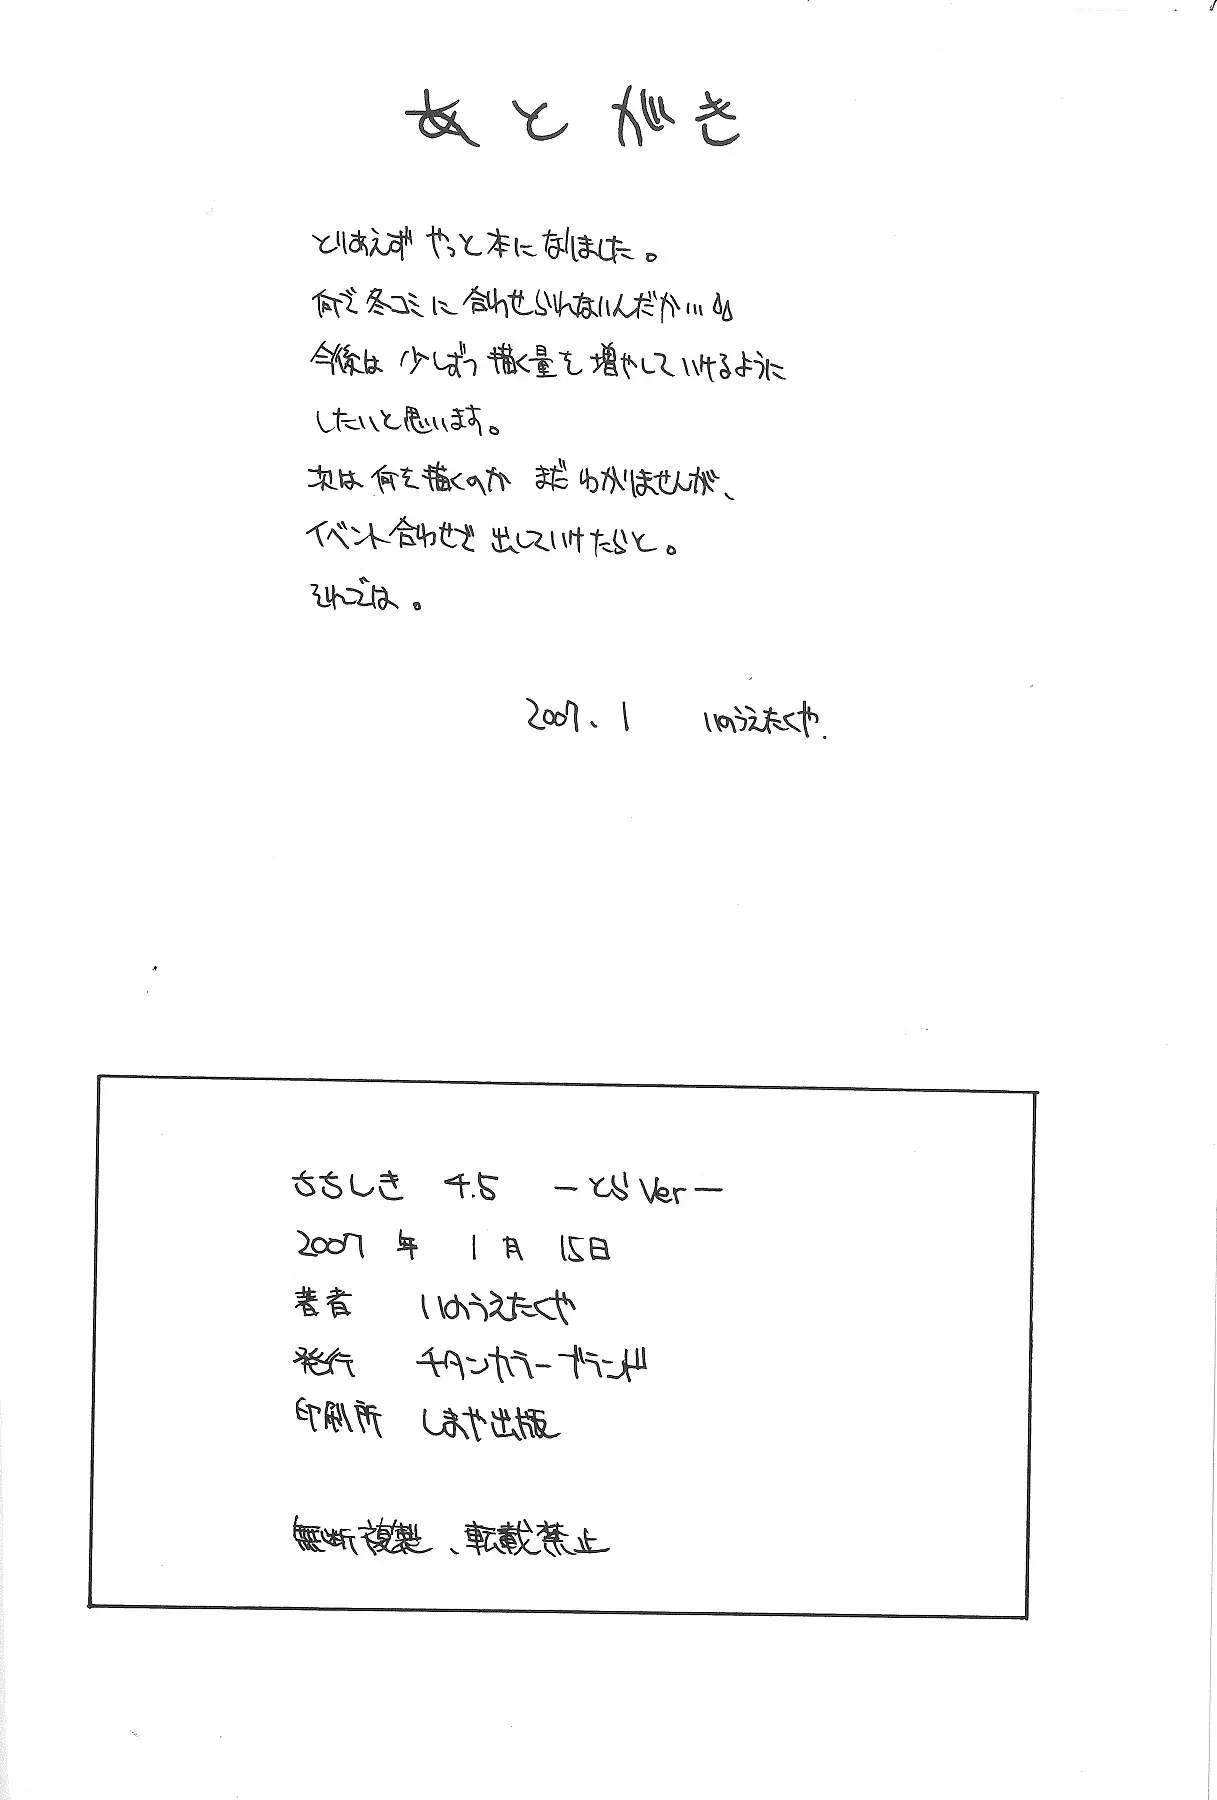 あとがき
とりあえず やっと本になりました。
何で冬コミに合わせられないんだか…
今後は 少しずつ 描く量を増やしていけるように
したいと思います。
次は何を描くのか まだわかりませんが、
イベント合わせで出していけたらと。
それでは。
2007、1 いのうえたくや.
ちちしき 4.5 ーとらVerー
2007年 1月 15日
著者 いのうえたくや
発行 チタンカラーブランド
印刷所 しまや出版
無断複製、転載禁止